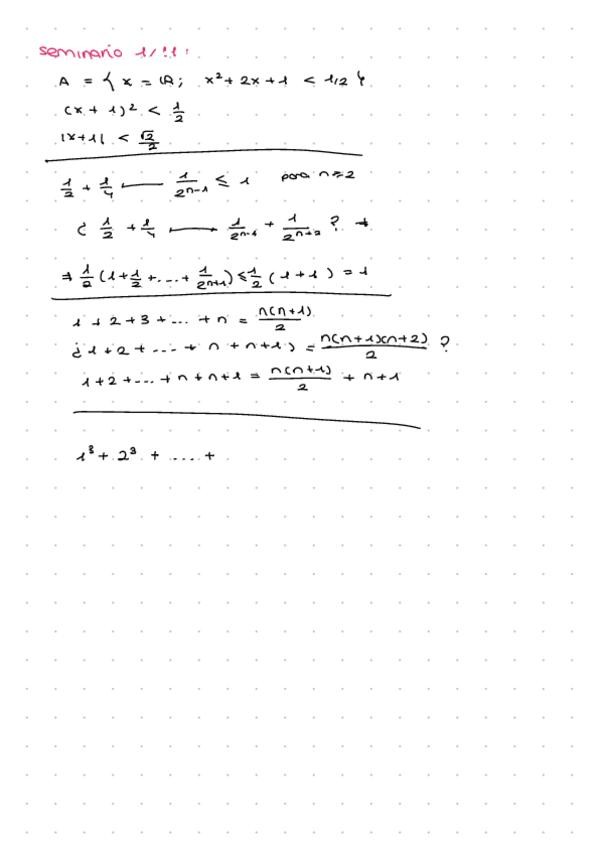 seminario 1/11:
A = { x = ℝ; x² + 2x + 1 < 1/2 }
(x + 1)² < 1/2
|x+1| < √2/2
1/2 + 1/4 —— 1/2ⁿ⁻¹ ≤ 1 para n=2
¿ 1/2 + 1/4 —— 1/2ⁿ⁻¹ + 1/2ⁿ⁺² ? →
⇒ 1/2 (1 + 1/2 + ... + 1/2ⁿ⁺¹) ≤ 1/2 (1 + 1) = 1
1 + 2 + 3 + ... + n = n(n+1)/2
¿ 1 + 2 + ... + n + n+1) = n(n+1)(n+2)/2 ?
1 + 2 + ... + n + n+1 = n(n+1)/2 + n+1
1³ + 2³ + .... +